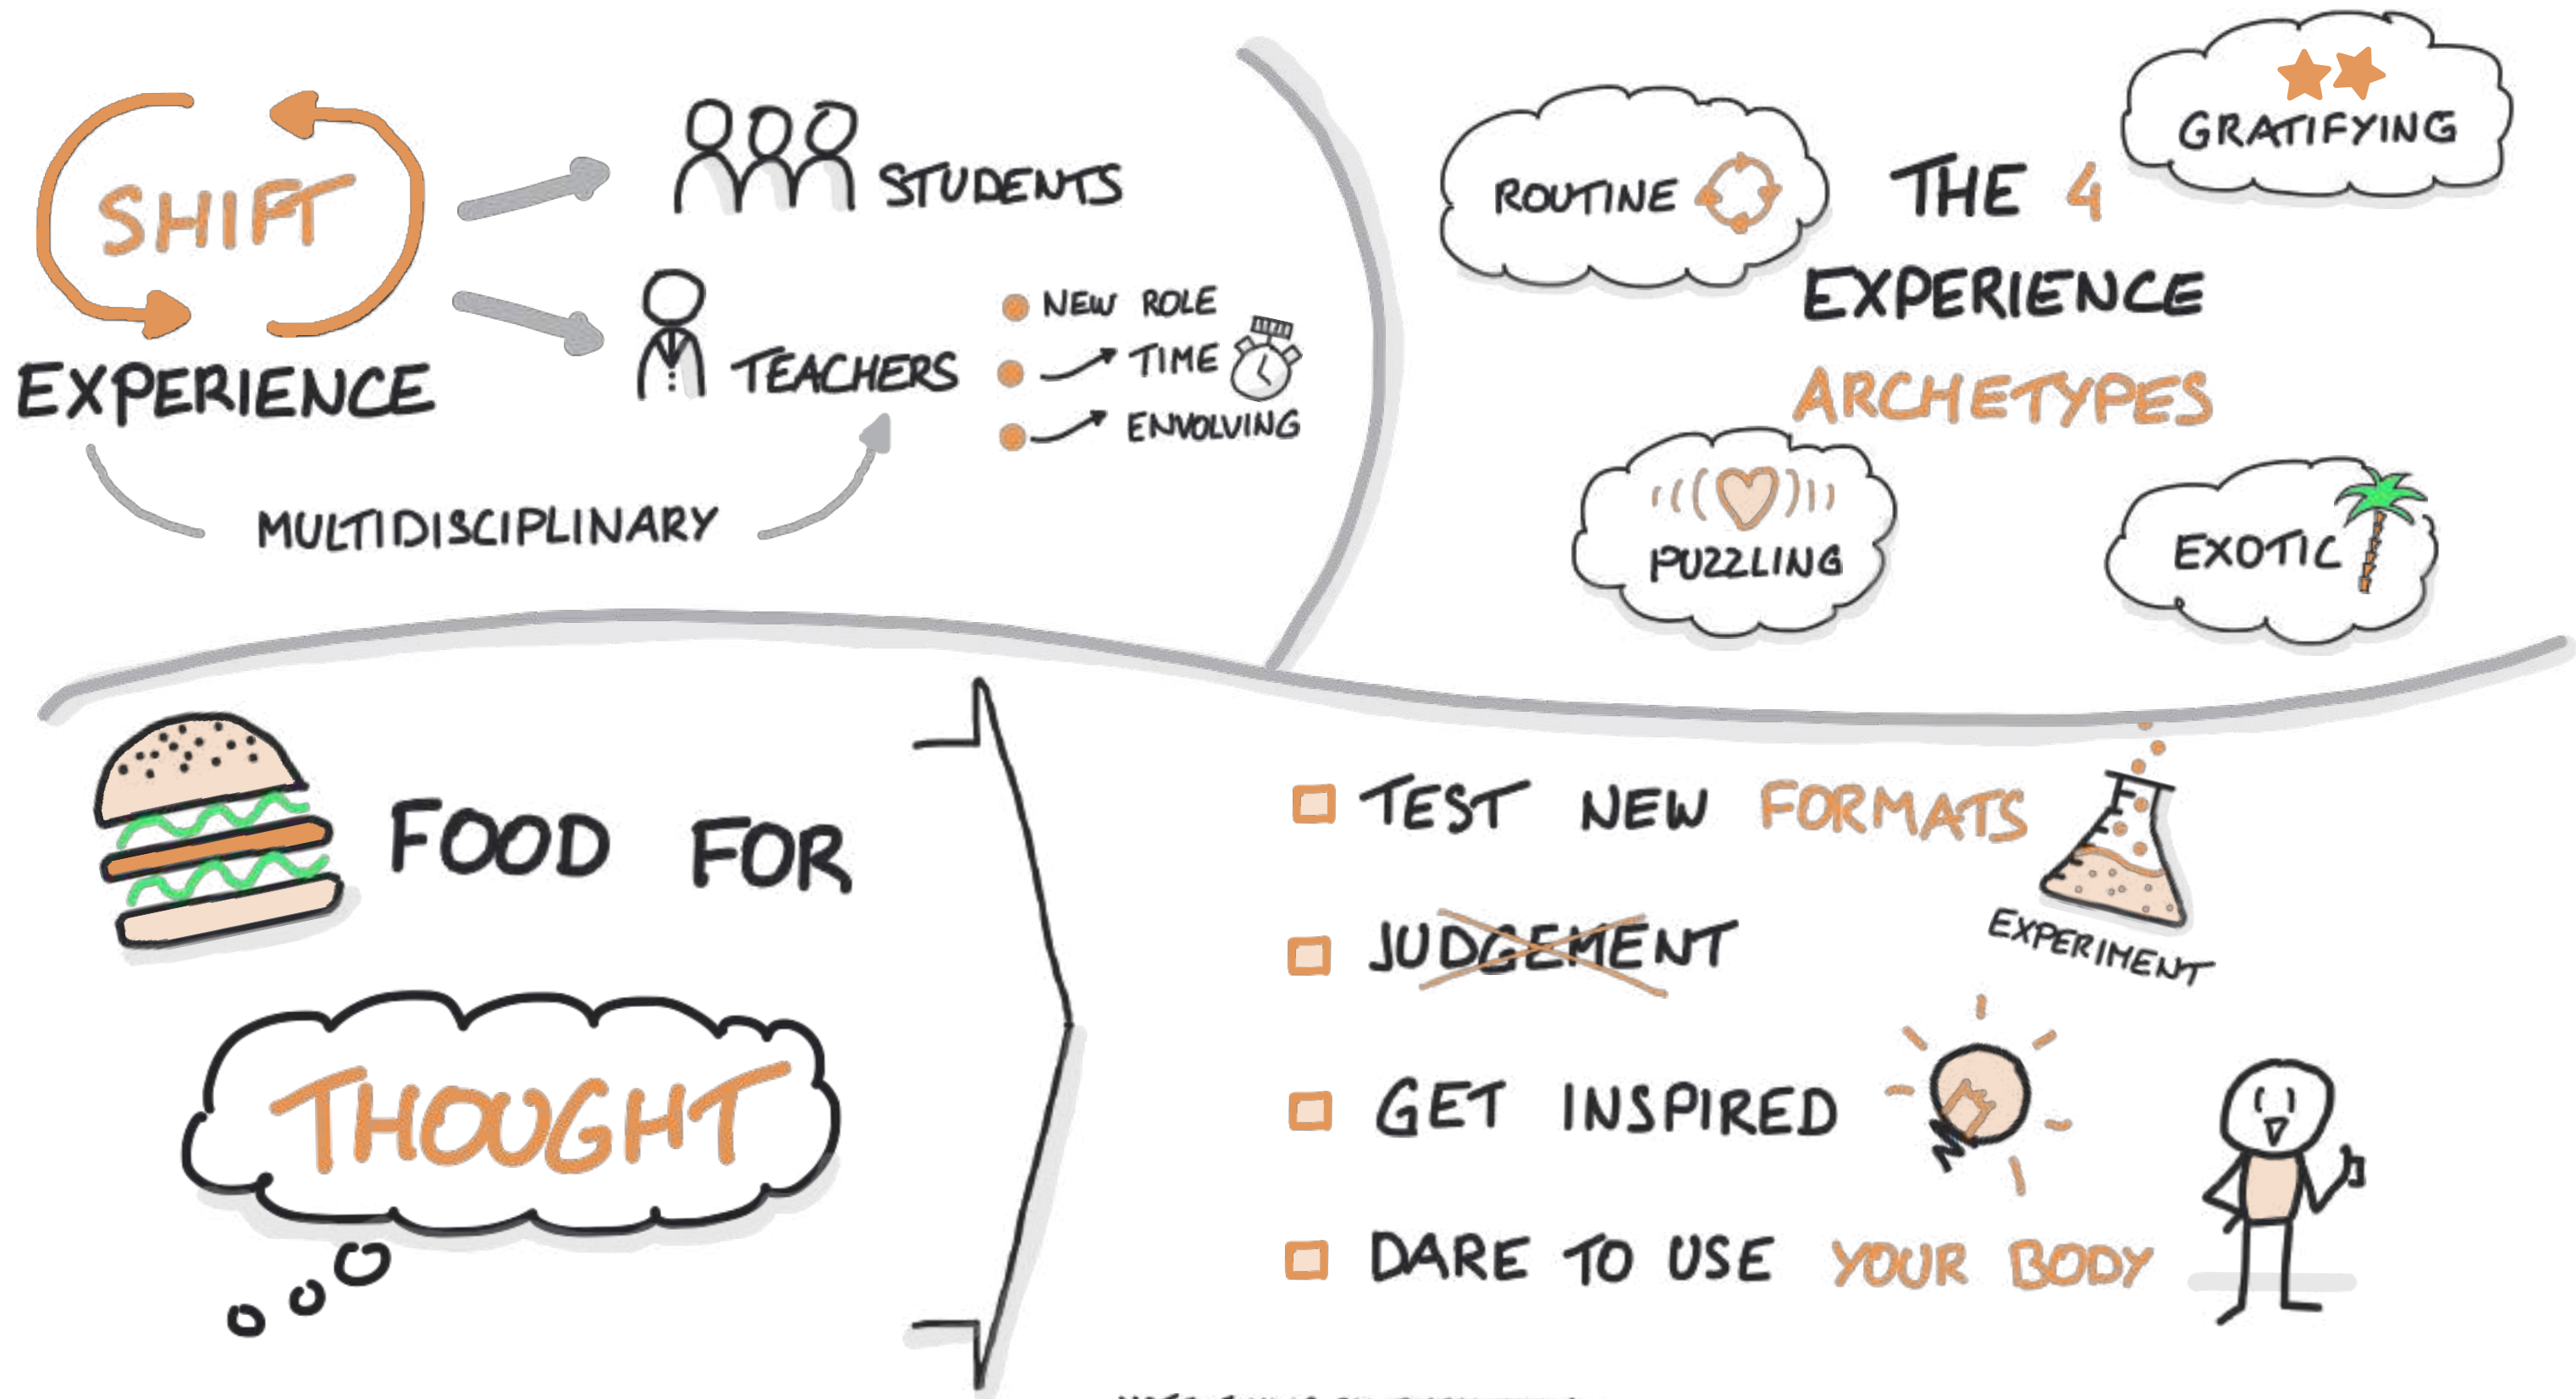 SHIFT
EXPERIENCE
STUDENTS
TEACHERS
NEW ROLE
TIME
ENVOLVING
MULTIDISCIPLINARY
ROUTINE
GRATIFYING
THE 4
EXPERIENCE
ARCHETYPES
PUZZLING
EXOTIC
FOOD FOR
THOUGHT
TEST NEW FORMATS
EXPERIMENT
JUDGEMENT
GET INSPIRED
DARE TO USE YOUR BODY